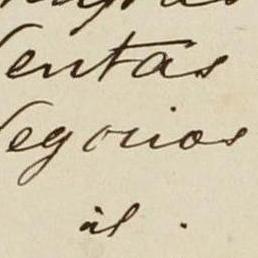 Ventas
Negocios
id .